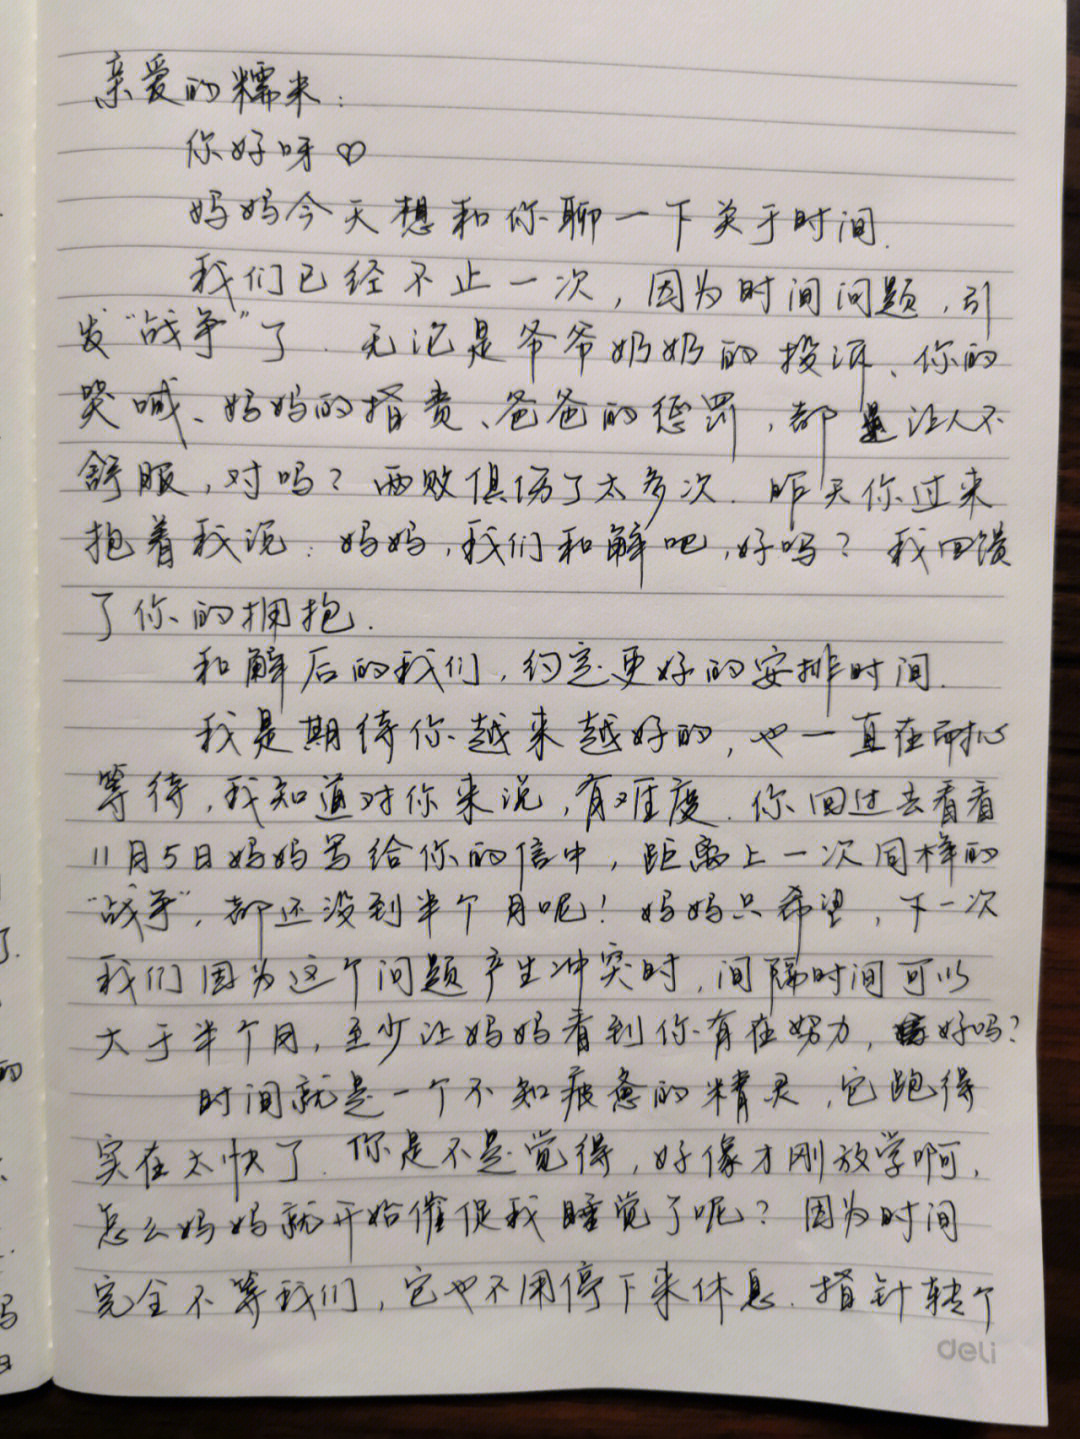 亲爱的糯米：
你好呀♡
妈妈今天想和你聊一下关于时间.
我们已经不止一次，因为时间问题，引
发“战争”了.无论是爷爷奶奶的投诉、你的
哭喊、妈妈的指责、爸爸的惩罚，都是让人不
舒服，对吗？两败俱伤了太多次.昨天你过来
抱着我说：妈妈，我们和解吧，好吗？我回馈
了你的拥抱.
和解后的我们，约定更好的安排时间.
我是期待你越来越好的，也一直在耐心
等待，我知道对你来说，有难度.你回过去看看
11月5日妈妈写给你的信中，距离上一次同样的
“战争”，都还没到半个月呢！妈妈只希望，下一次
我们因为这个问题产生冲突时，间隔时间可以
大于半个月，至少让妈妈看到你有在努力，好吗？
时间就是一个不知疲惫的精灵，它跑得
实在太快了.你是不是觉得，好像才刚放学啊，
怎么妈妈就开始催促我睡觉了呢？因为时间
完全不等我们，它也不用停下来休息.指针转个
deli